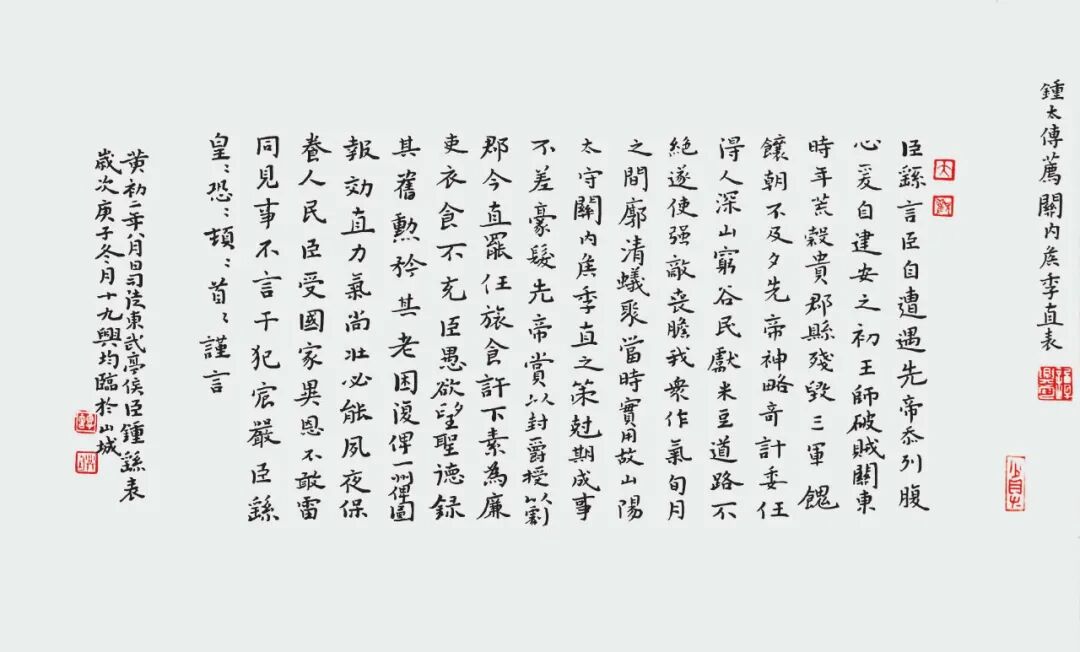 鍾太傅薦關内侯季直表
臣繇言臣自遭遇先帝忝列腹
心爰自建安之初王師破賊關東
時年荒穀貴郡縣殘毀三軍餽
饟朝不及夕先帝神略奇計委任
得人深山窮谷民獻米豆道路不
絕遂使强敵喪膽我衆作氣旬月
之間廓清蟻聚當時實用故山陽
太守關内侯季直之策尅期成事
不差豪髮先帝賞以封爵授以劇
郡今直罷任旅食許下素為廉
吏衣食不充臣愚欲望聖德録
其舊勲矜其老困復俾一州俾圖
報効直力氣尚壯必能夙夜保
養人民臣受國家異恩不敢雷
同見事不言干犯宸嚴臣繇
皇:恐:頓:首:謹言
黄初二年八月日司徒東武亭侯臣鍾繇表
歲次庚子冬月十九興均臨於山城